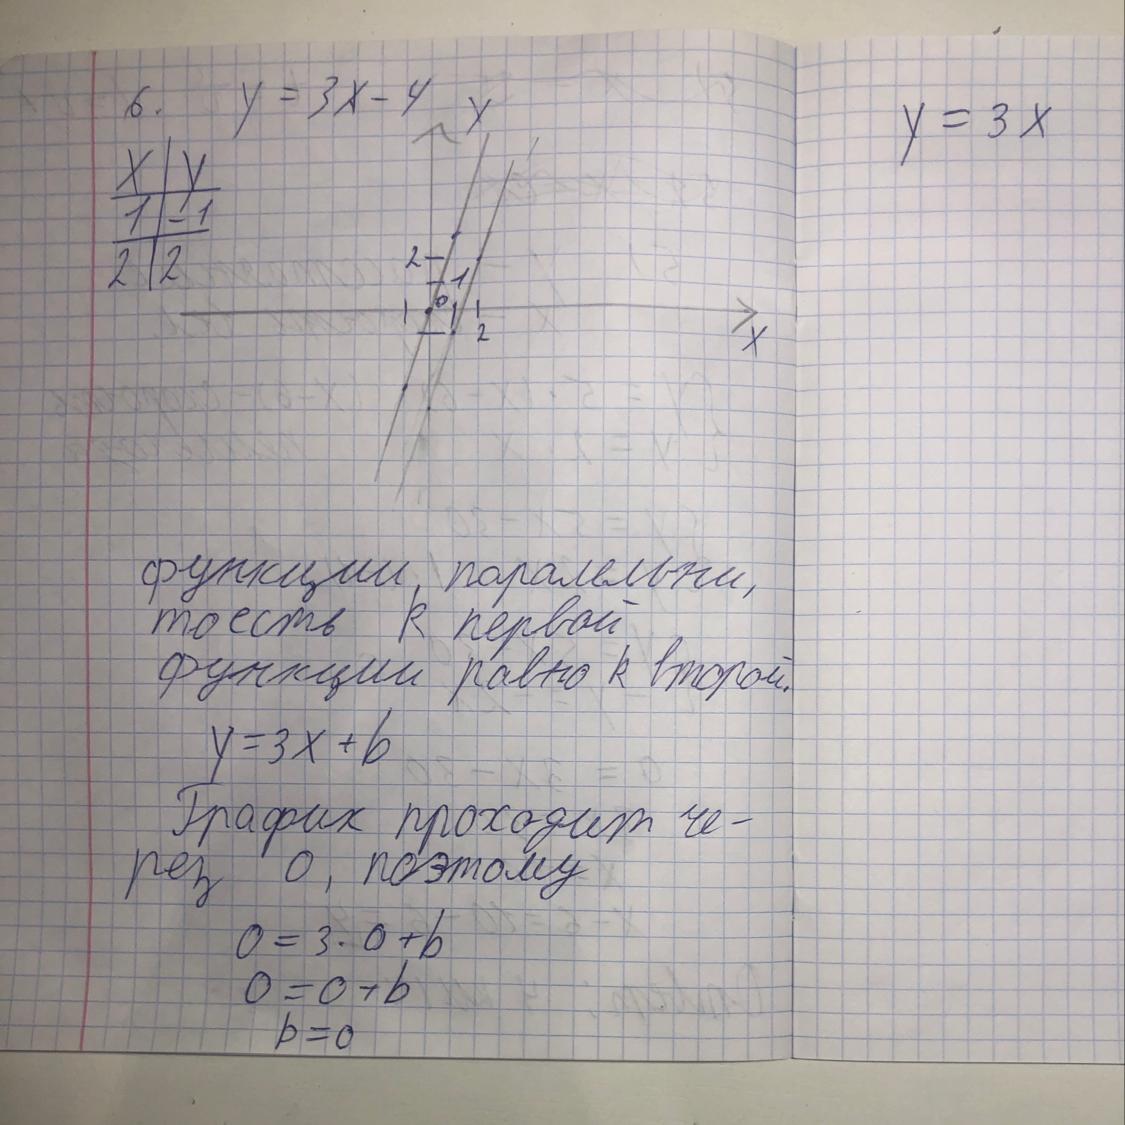 6. y = 3x - 4
x | y
1 | -1
2 | 2
y
2
1
0
1 1 1
2
x
функции, паралельни,
тоесть k первой
функции равно k второй.
y = 3x + b
График проходит че-
рез 0, поэтому
0 = 3 · 0 + b
0 = 0 + b
b = 0
y = 3x